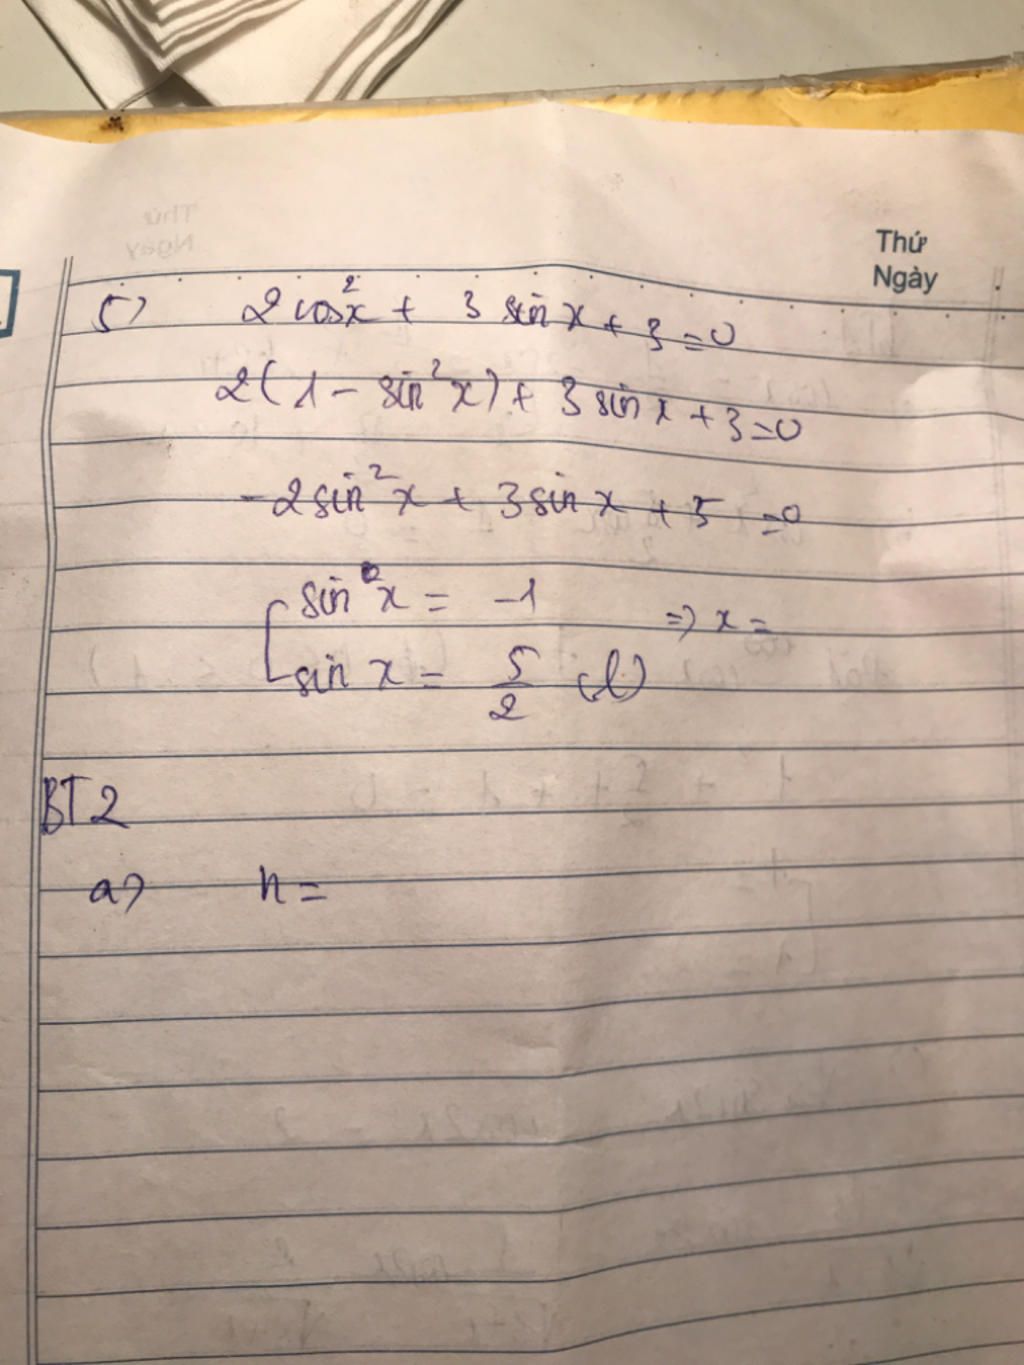 Thứ
Ngày
5) 2cos²x + 3 sin x + 3 = 0
2(1 - sin²x) + 3 sin x + 3 = 0
-2sin²x + 3sin x + 5 = 0
sin x = -1 => x =
sin x = 5/2 (l)
BT2
a) n =